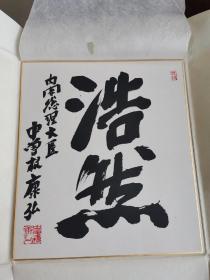 浩然
内閣総理大臣
中曽根康弘